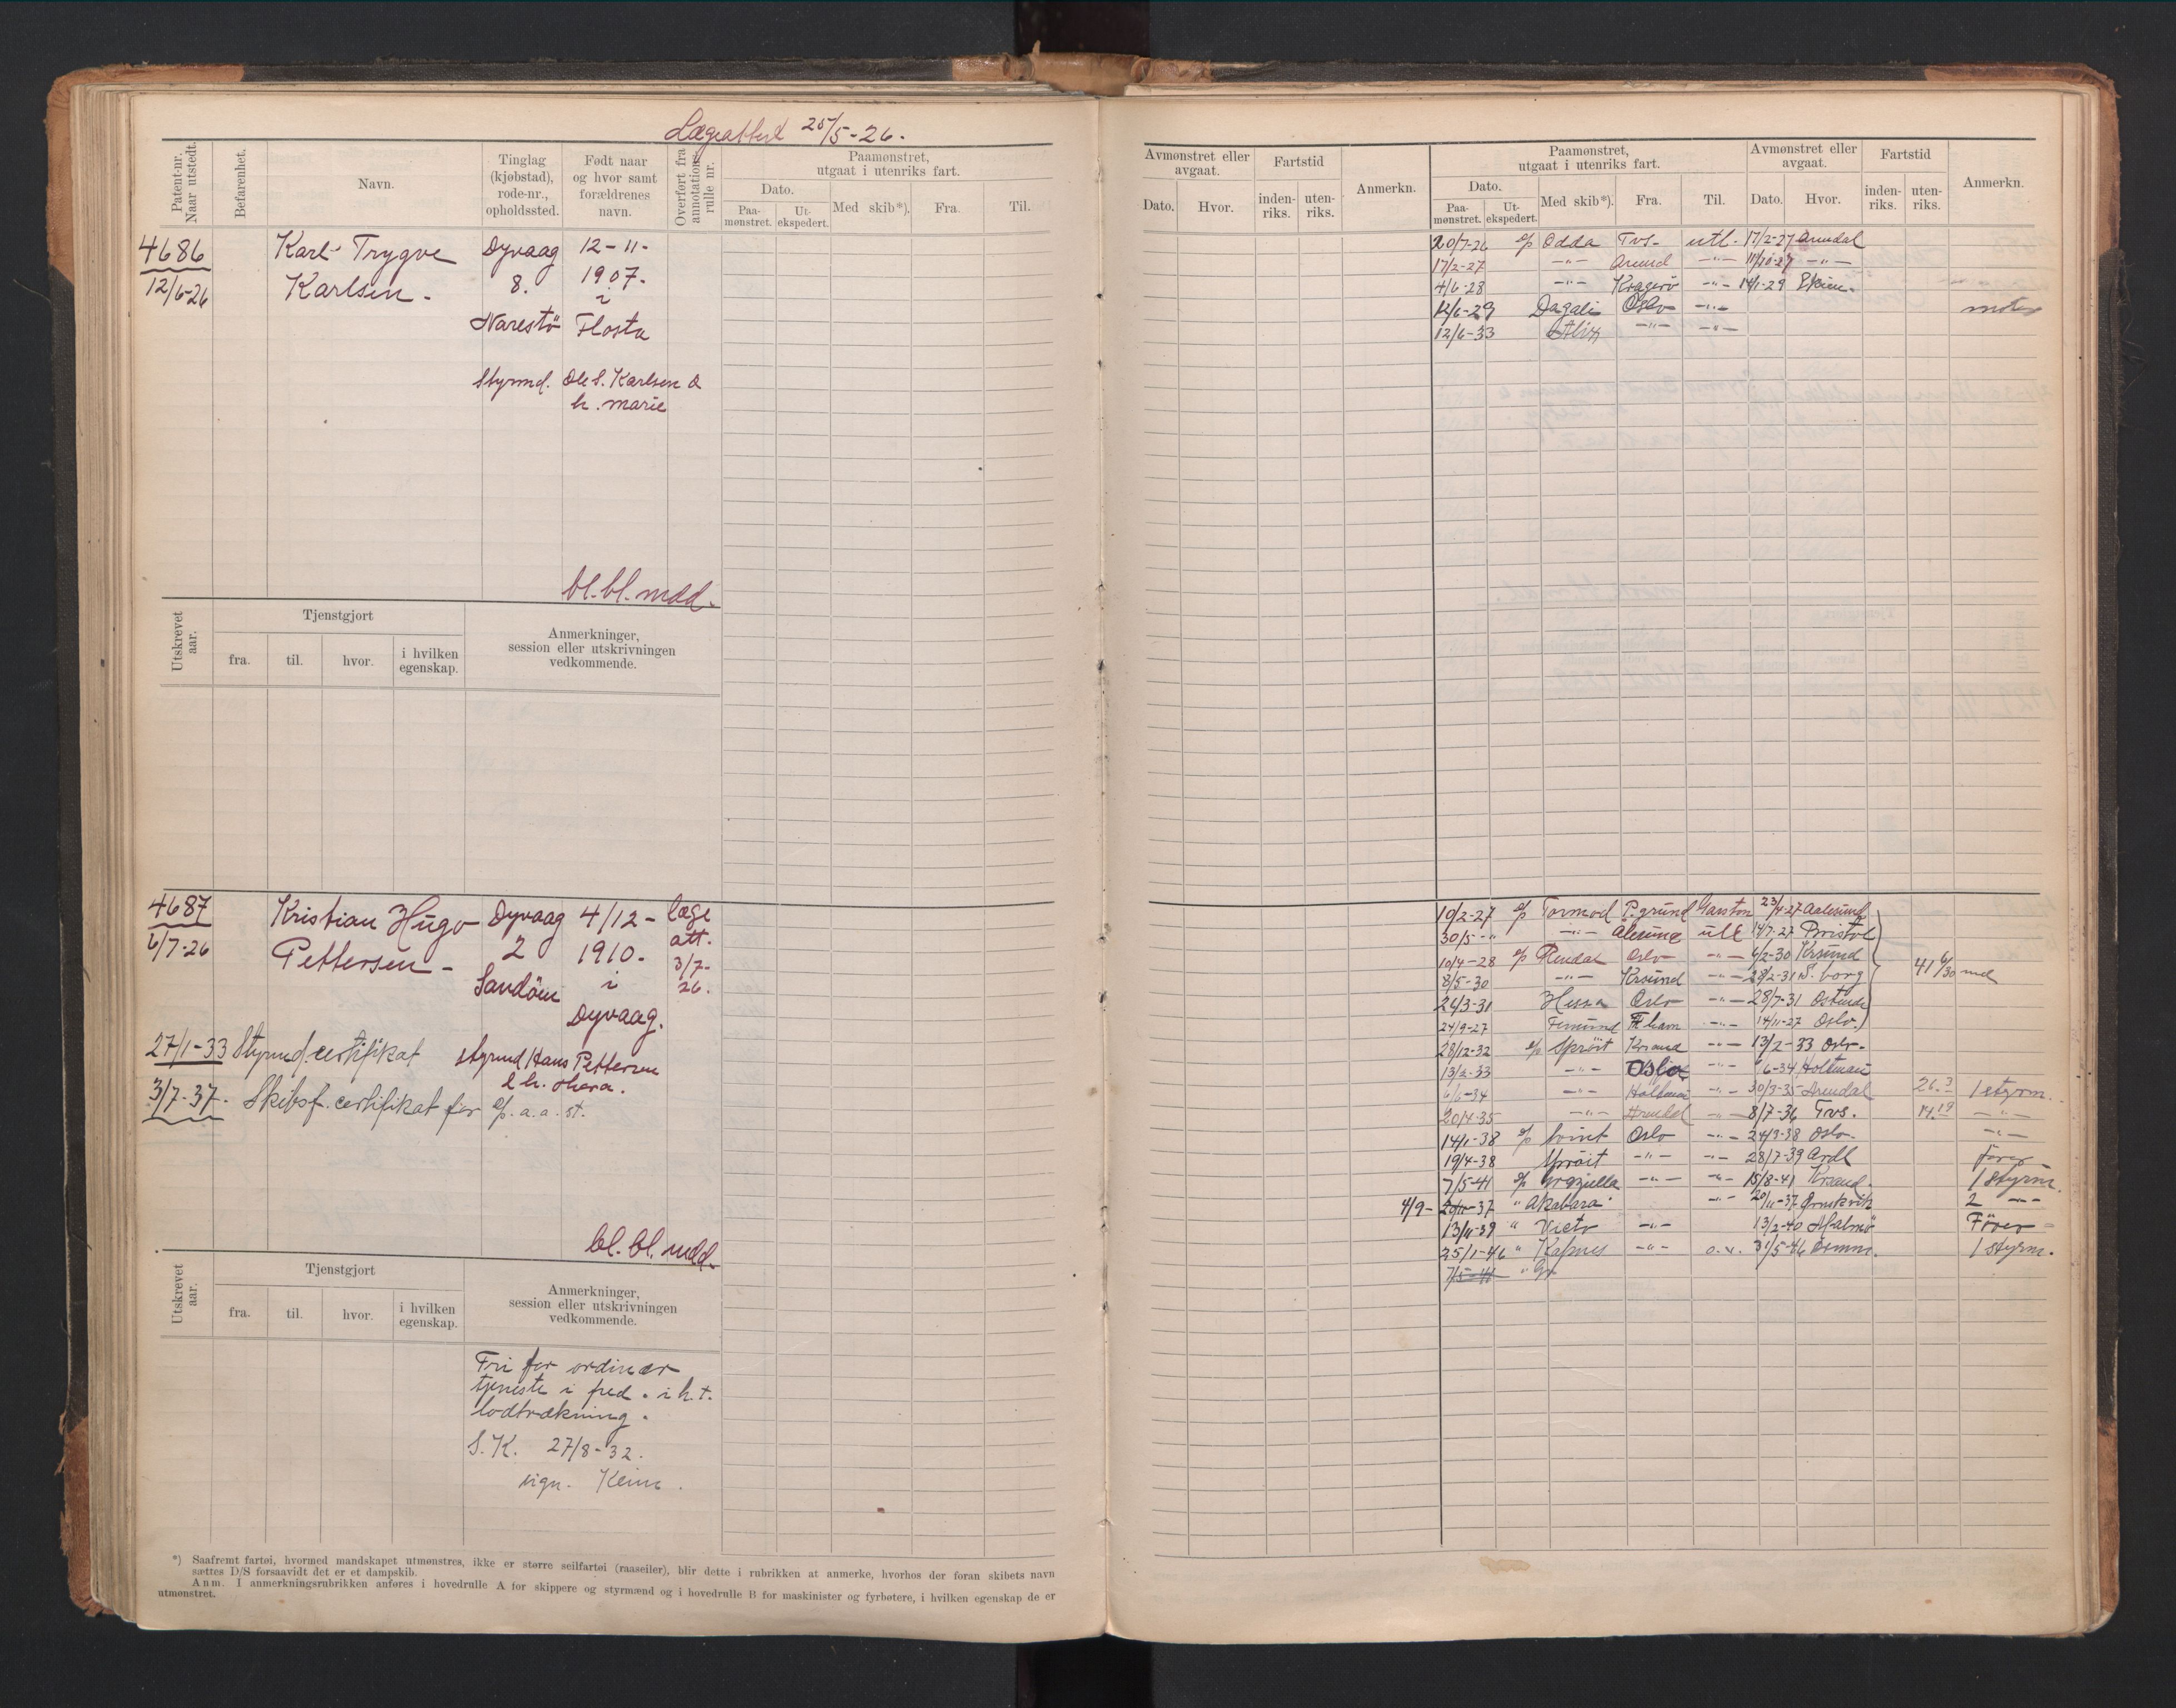 Lægeattest 25/5-26.
Patent-nr. Naar utstedt.
Befarenhet.
Navn.
Tinglag (kjøbstad), rode-nr., opholdssted.
Født naar og hvor samt forældrenes navn.
Overført fra annotationsrulle nr.
Paamønstret, utgaat i utenriks fart.
Dato.
Paa-mønstret.
Ut-ekspedert.
Med skib*).
Fra.
Til.
4686
12/6-26
Karl Trygve
Karlsen.
Dyvaag
8.
Narestö
12-11-
1907.
i
Flosta
Styrmd. Ole S. Karlsen &
h. Marie
bl. bl. mdd.
Utskrevet aar.
Tjenstgjort
fra.
til.
hvor.
i hvilken egenskap.
Anmerkninger, session eller utskrivningen vedkommende.
4687
6/7-26
Kristian Hugo
Pettersen -
Dyvaag
2
Sandöen
4/12-
1910.
i
Dyvaag.
læge
att.
3/7-
26.
27/1-33 Styrmd. certifikat
styrmd Hans Pettersen
& h.
3/7-37. Skibsf. certifikat for e/p. a. a. st.
bl. bl. mdd.
Utskrevet aar.
Tjenstgjort
fra.
til.
hvor.
i hvilken egenskap.
Anmerkninger, session eller utskrivningen vedkommende.
Fri for ordinær
tjeneste i fred. i h. t.
lodtrækning.
S. K. 27/8-32.
sign.
*) Saafremt fartøi, hvormed mandskapet utmønstres, ikke er større seilfartøi (raaseiler), blir dette i rubrikken at anmerke, hvorhos der foran skibets navn
sættes D/S forsaavidt det er et dampskib.
Anm. I anmerkningsrubrikken anføres i hovedrulle A for skippere og styrmænd og i hovedrulle B for maskinister og fyrbøtere, i hvilken egenskap de er
utmønstret.
Avmønstret eller avgaat.
Dato.
Hvor.
Fartstid
inden-riks.
uten-riks.
Anmerkn.
Paamønstret, utgaat i utenriks fart.
Dato.
Paa-mønstret.
Ut-ekspedert.
Med skib*).
Fra.
Til.
Avmønstret eller avgaat.
Dato.
Hvor.
Fartstid
inden-riks.
uten-riks.
Anmerkn.
20/7-26 Odda Tvs- utl. 17/2-27 Arendal
17/2-27 -"- Arend -"- 11/10-27 -"-
4/6-28 -"- Kragerö -"- 14/1-29 Skien.
12/6-29 Dagali Oslo -"-
12/6-33 -"- -"-
10/2-27 Tormod P.grund Garston 23/4-27 Aalesund
30/5-" -"- Alesund utl 14/7-27 Bristol
10/4-28 Rendal Oslo -"- 6/2-30 Krsund
8/5-30 -"- Krsund -"- 28/2-31 S. borg 41 6/30 md
24/3-31 Oslo -"- 28/7-31 Ostende
24/9-27 Femund -"- 14/11-27 Oslo.
28/12-32 Spröit Krsand -"- 13/2-33 Oslo.
13/2-33 -"- Oslo -"- 6/6-34
6/6-34 -"- -"- 30/3-35 Arendal 1 styrm.
20/4-35 -"- Arendal -"- 8/7-36 Tvs. -"-
14/1-38 Oslo -"- 24/3-38 Oslo. -"-
19/4-38 Spröit -"- -"- 28/7-39 Ardl
7/5-41 Graziella -"- -"- 15/8-41 Krsand. 1 styrm.
4/9- 20/11-37 " Akabara -"- 20/11-37 2 -"-
13/11-39 " -"- 13/2-40 Malmö Förer
25/1-46 " -"- 31/5-46 1 styrm.
7/5-41 " Gr